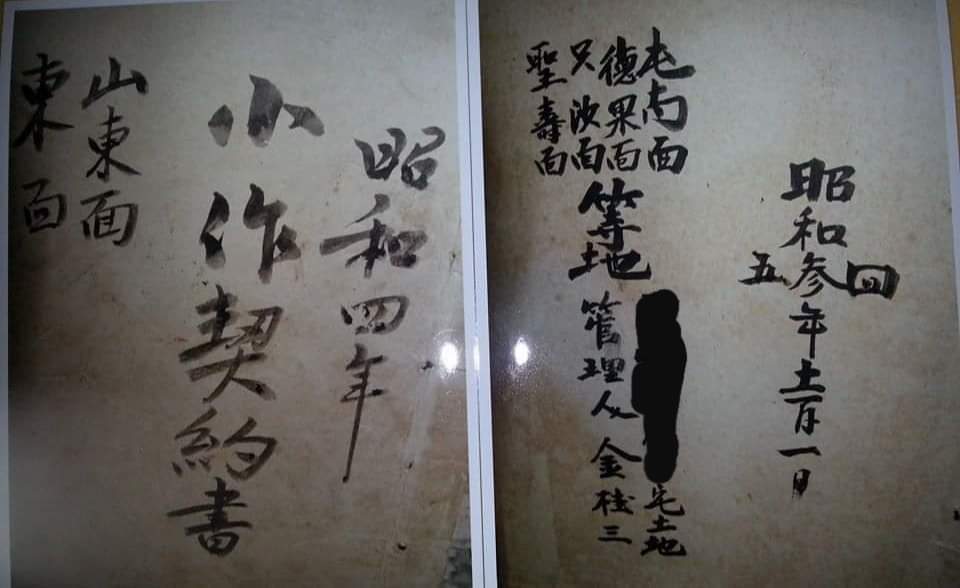 昭和四年
小作契約書
山東面
東面
四
昭和参年十一月一日
五
屯南面
德果面
只沙面
聖壽面
等地
宅土地
管理人 金 三